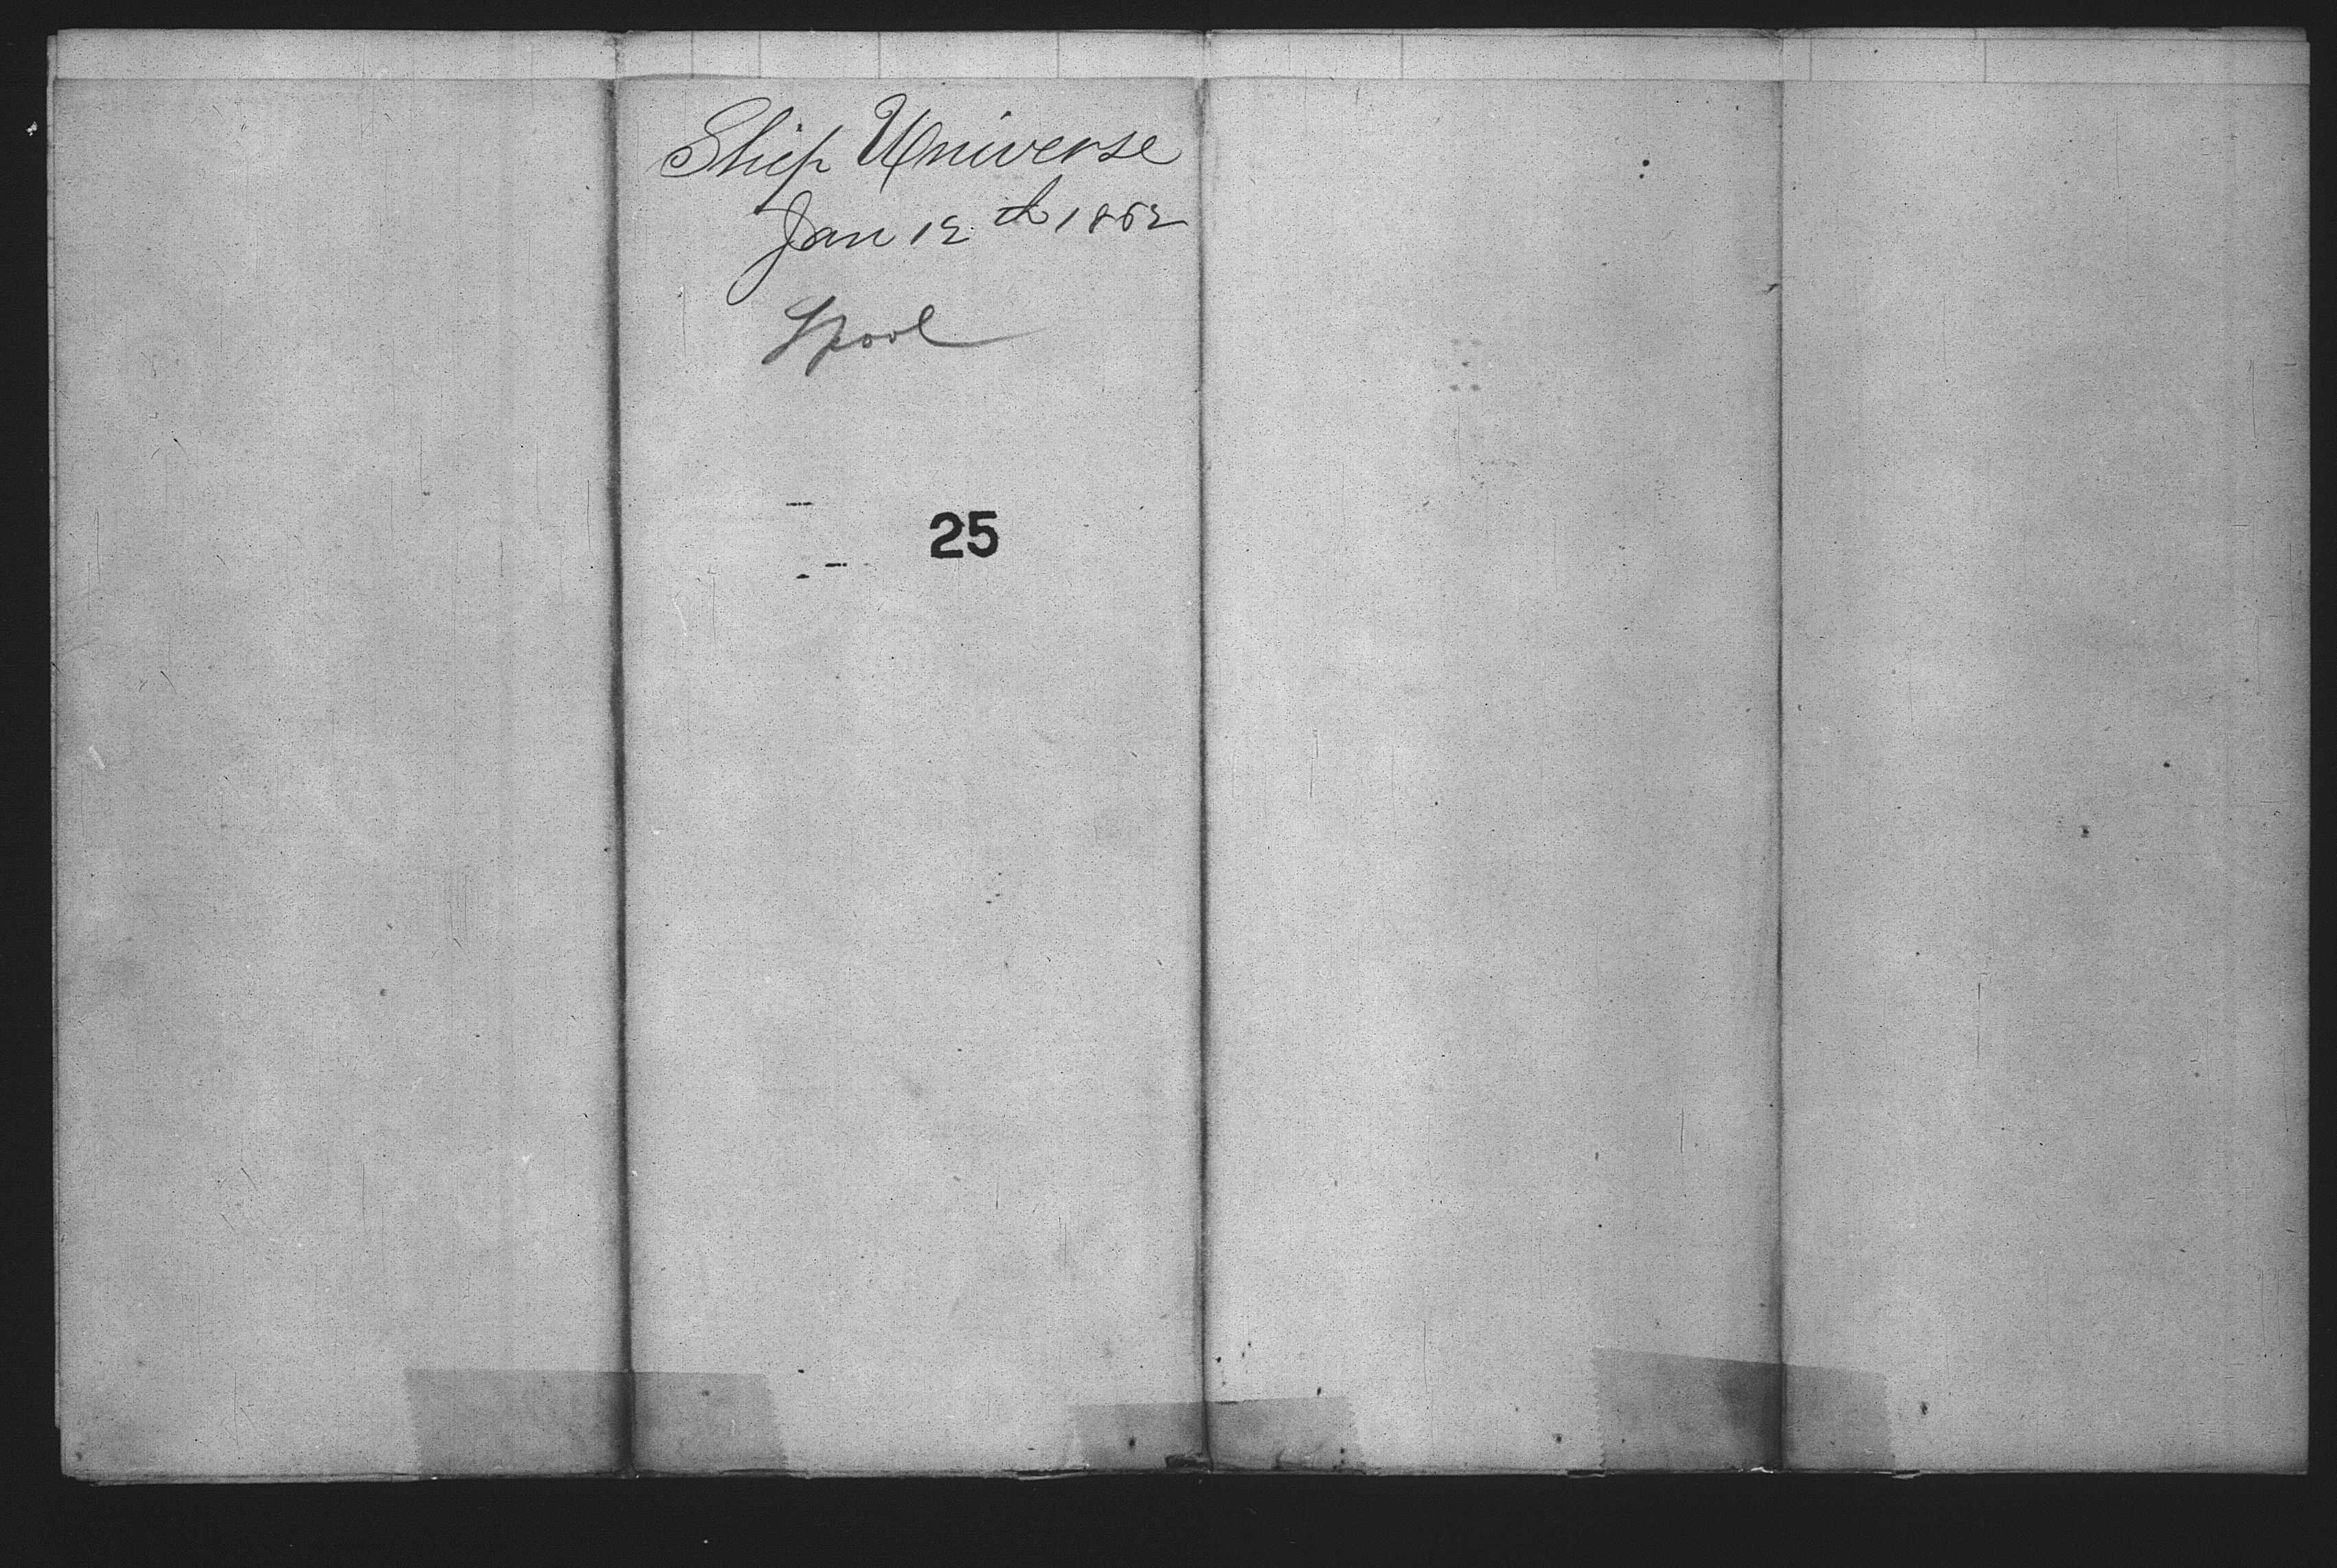 Ship Universe
Jan 12th 1862
Lpool
25